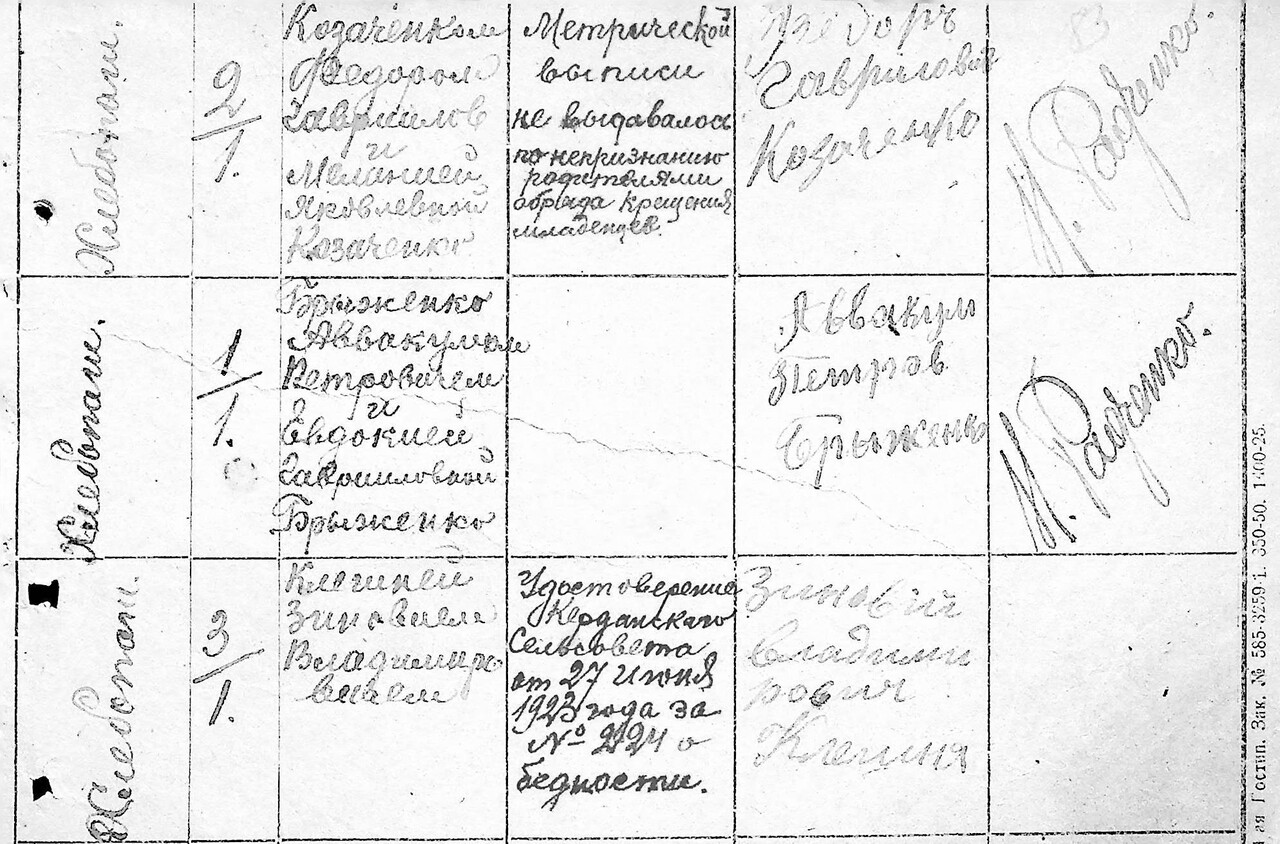 Хлебопаш.
2
1.
Козаченком
Федором
Гаврилов
и
Меланией
Яковлевной
Козаченко
Метрической
выписи
не выдавалось
по непризнанию
родителями
обряда крещения
младенцев.
Гаврилович
Козаченко
83
М. Радченко.
Хлебопаш.
1
1.
Брыженко
Аввакумом
Петровичем
и
Евдокией
Гавриловной
Брыженко
Аввакум
Петров
Брыжень
М. Радченко.
Хлебопаш.
3
1.
Клегиней
Зиновием
Владимиро
вичем
Удостоверение
Керданского
Сельсовета
от 27 Июня
1923 года за
№ 224 о
бедности.
Зиновій
Владими
рович
Клегиня
ая Гостип. Зак. № 585-3259 і. 350-50. 1400-25.